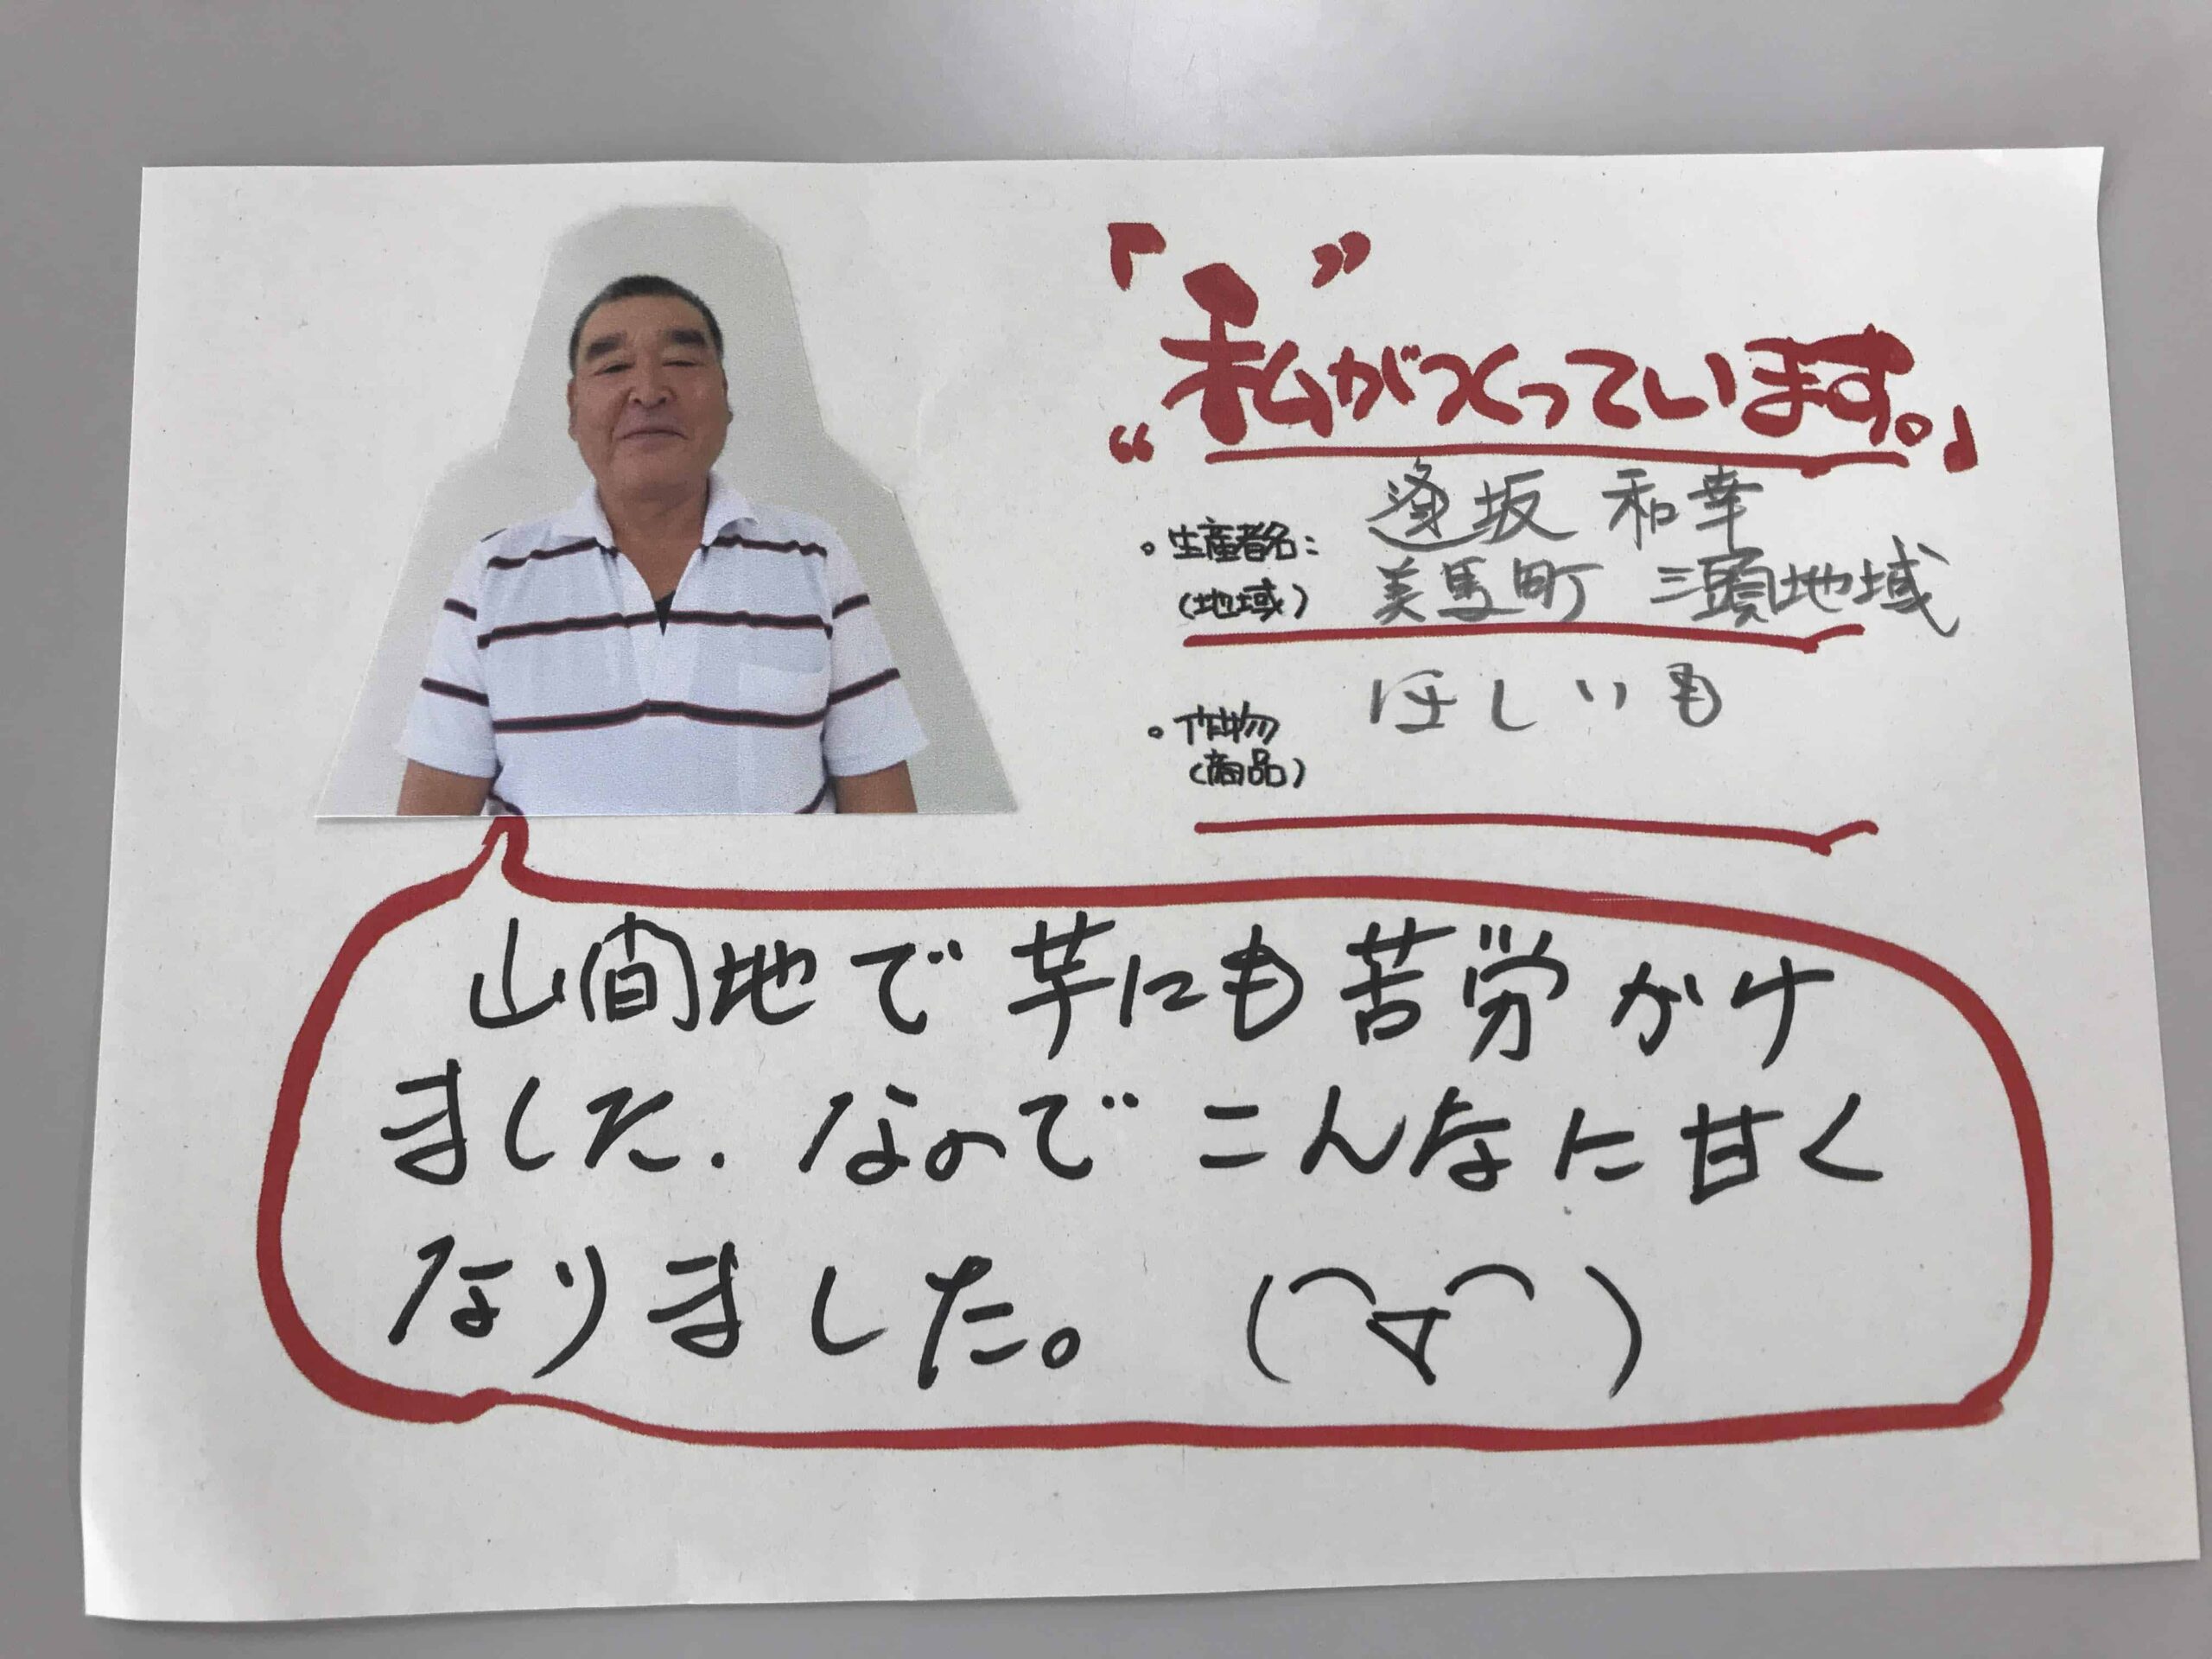 「私がつくっています。」
・生産者名: 逢坂 和幸
(地域) 美馬町 三頭地域
・作物 ほしいも
(商品)
山間地で芋にも苦労かけ
ました. なのでこんなに甘く
なりました。 (⌒▽⌒)